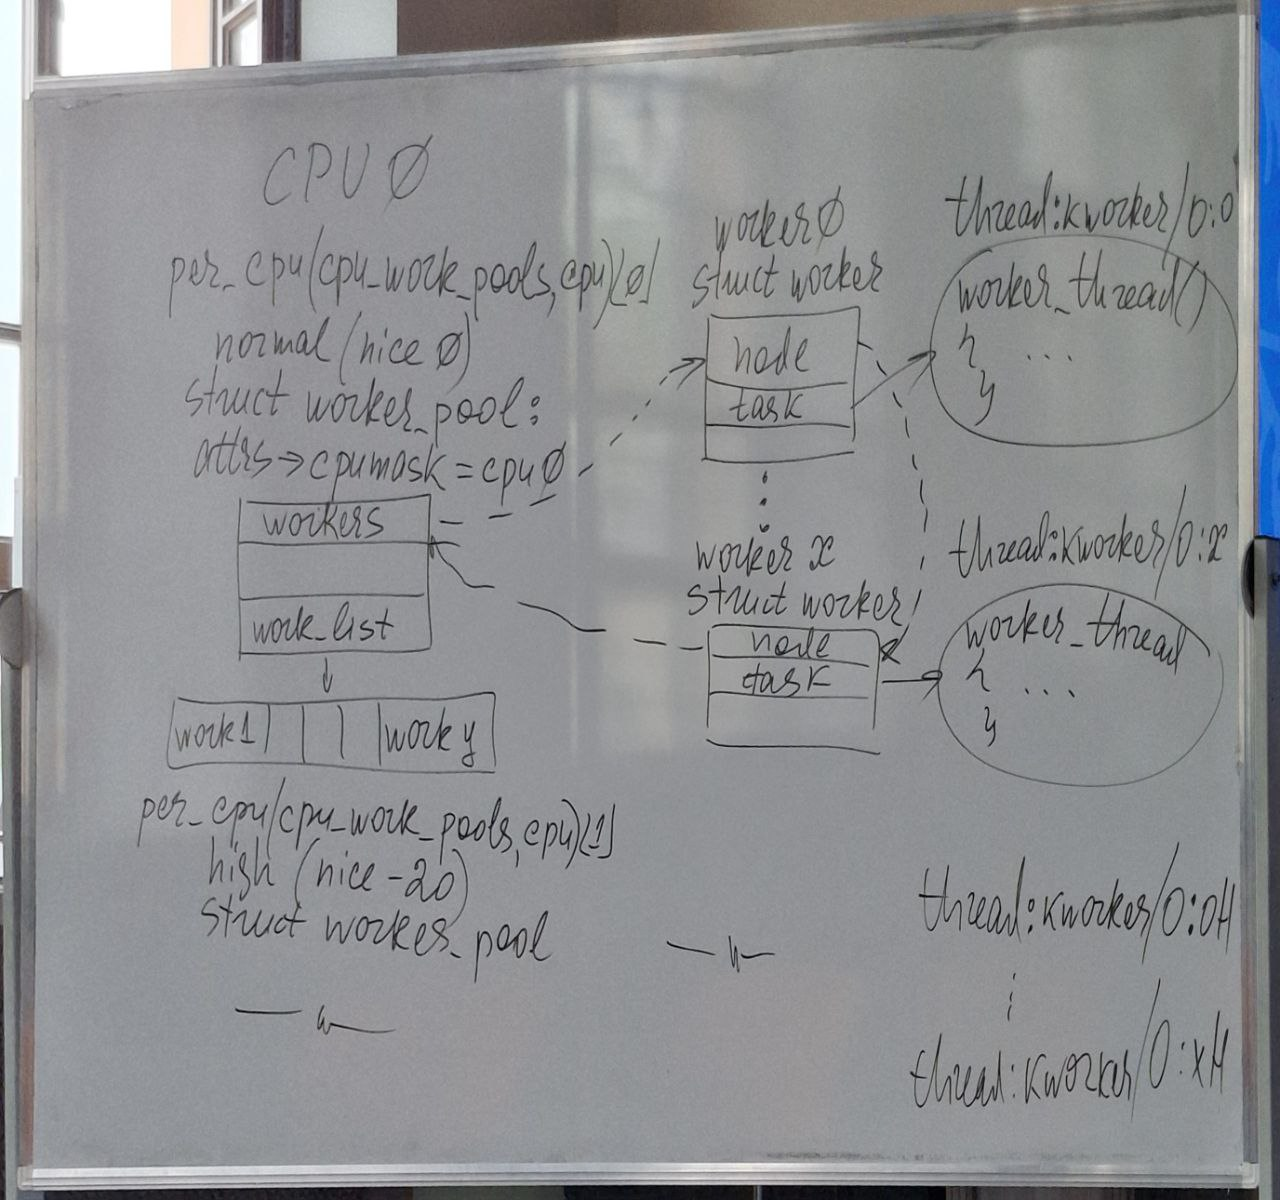 CPU Ø
per_cpu(cpu_work_pools, cpu)[Ø]
normal (nice Ø)
struct worker_pool:
attrs→cpumask = cpu Ø
workers
work_list
work1
work y
per_cpu(cpu_work_pools, cpu)[1]
high (nice -20)
struct worker_pool
— " —
worker Ø
struct worker
node
task
worker x
struct worker
node
task
— " —
thread:kworker/0:0
worker_thread()
{ ...
}
thread:kworker/0:x
worker_thread
{ ...
}
thread:kworker/0:0H
thread:kworker/0:xH